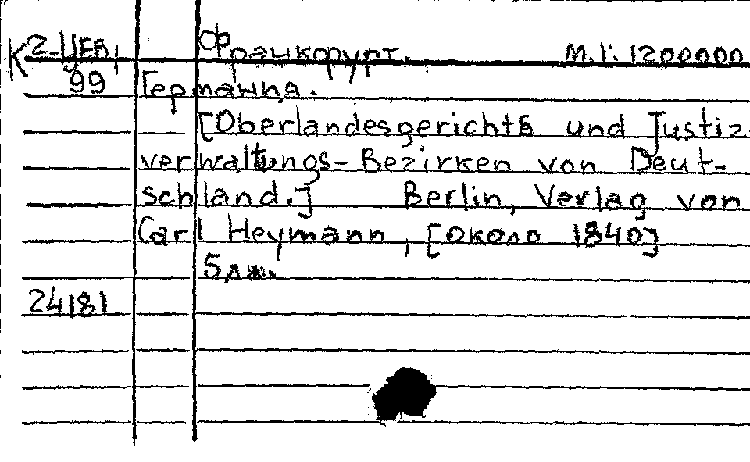 К 2-ЦЕВ, Франкфурт. М.1:1200000
99 Германия.
[Oberlandesgerichts und Justiz-
verwaltungs-Bezirken von Deut-
schland.] Berlin, Verlag von
Carl Heymann, [около 1840]
5 лж.
24181